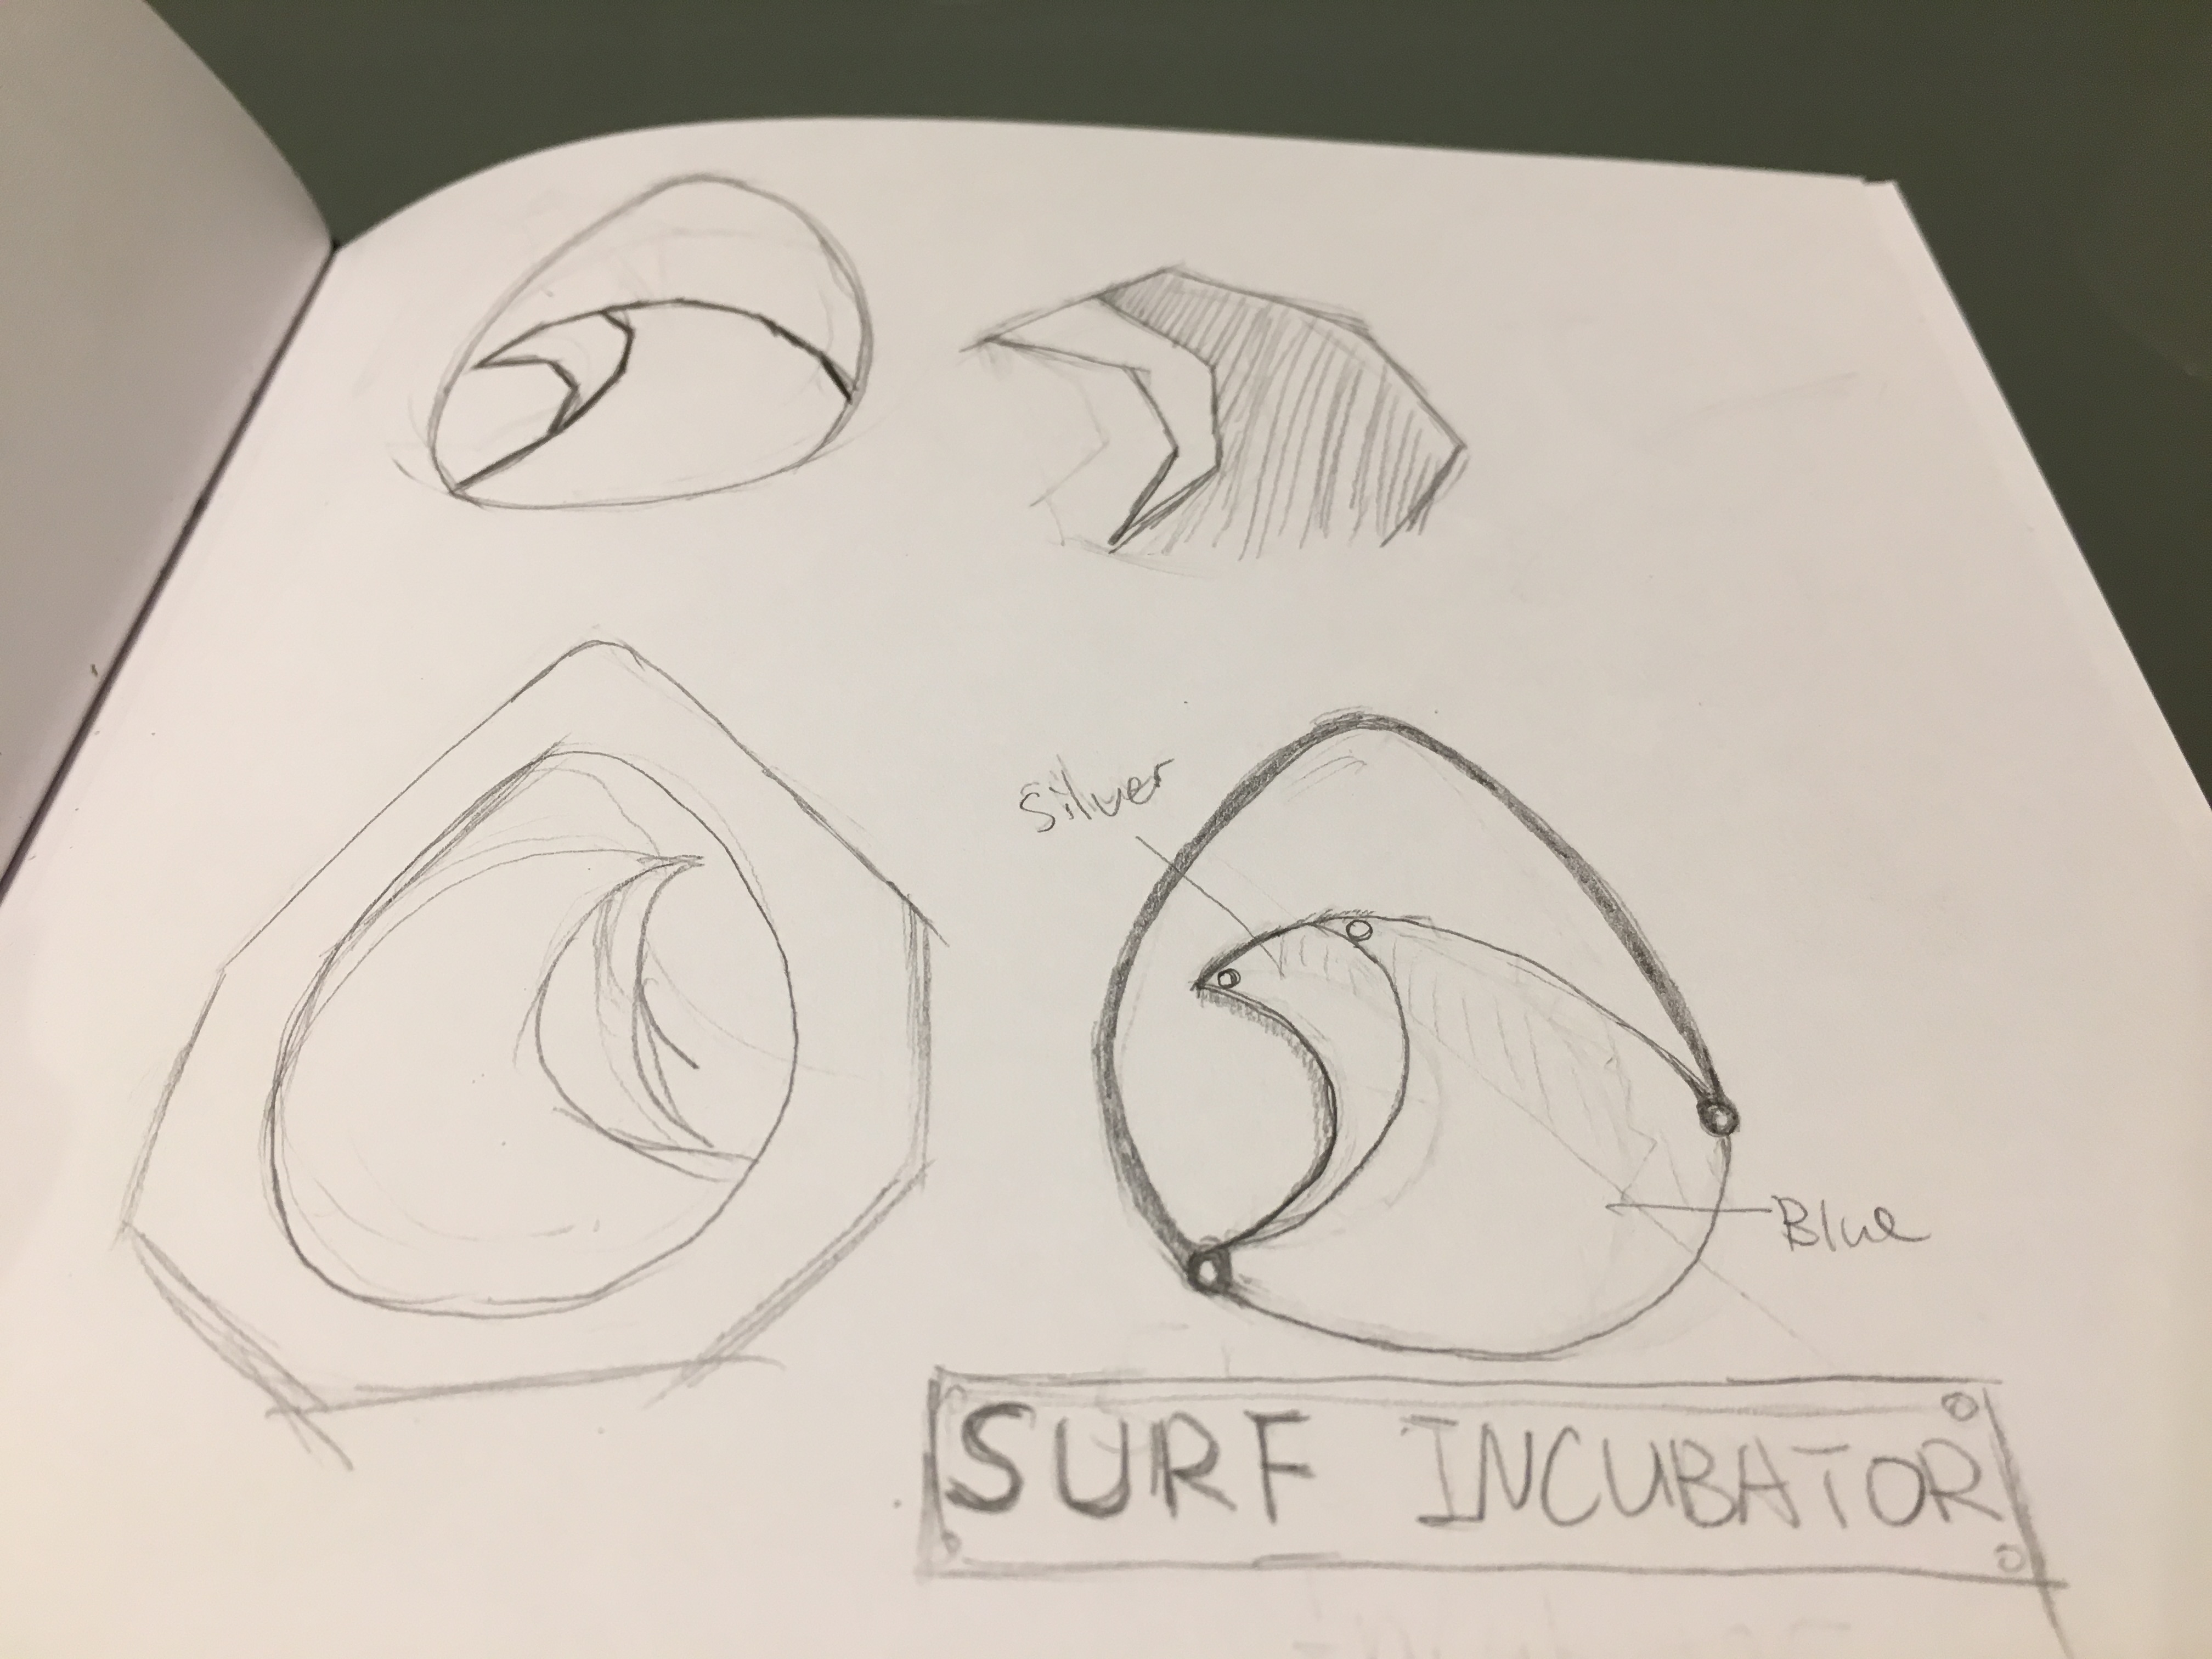 Silver
Blue
SURF INCUBATOR